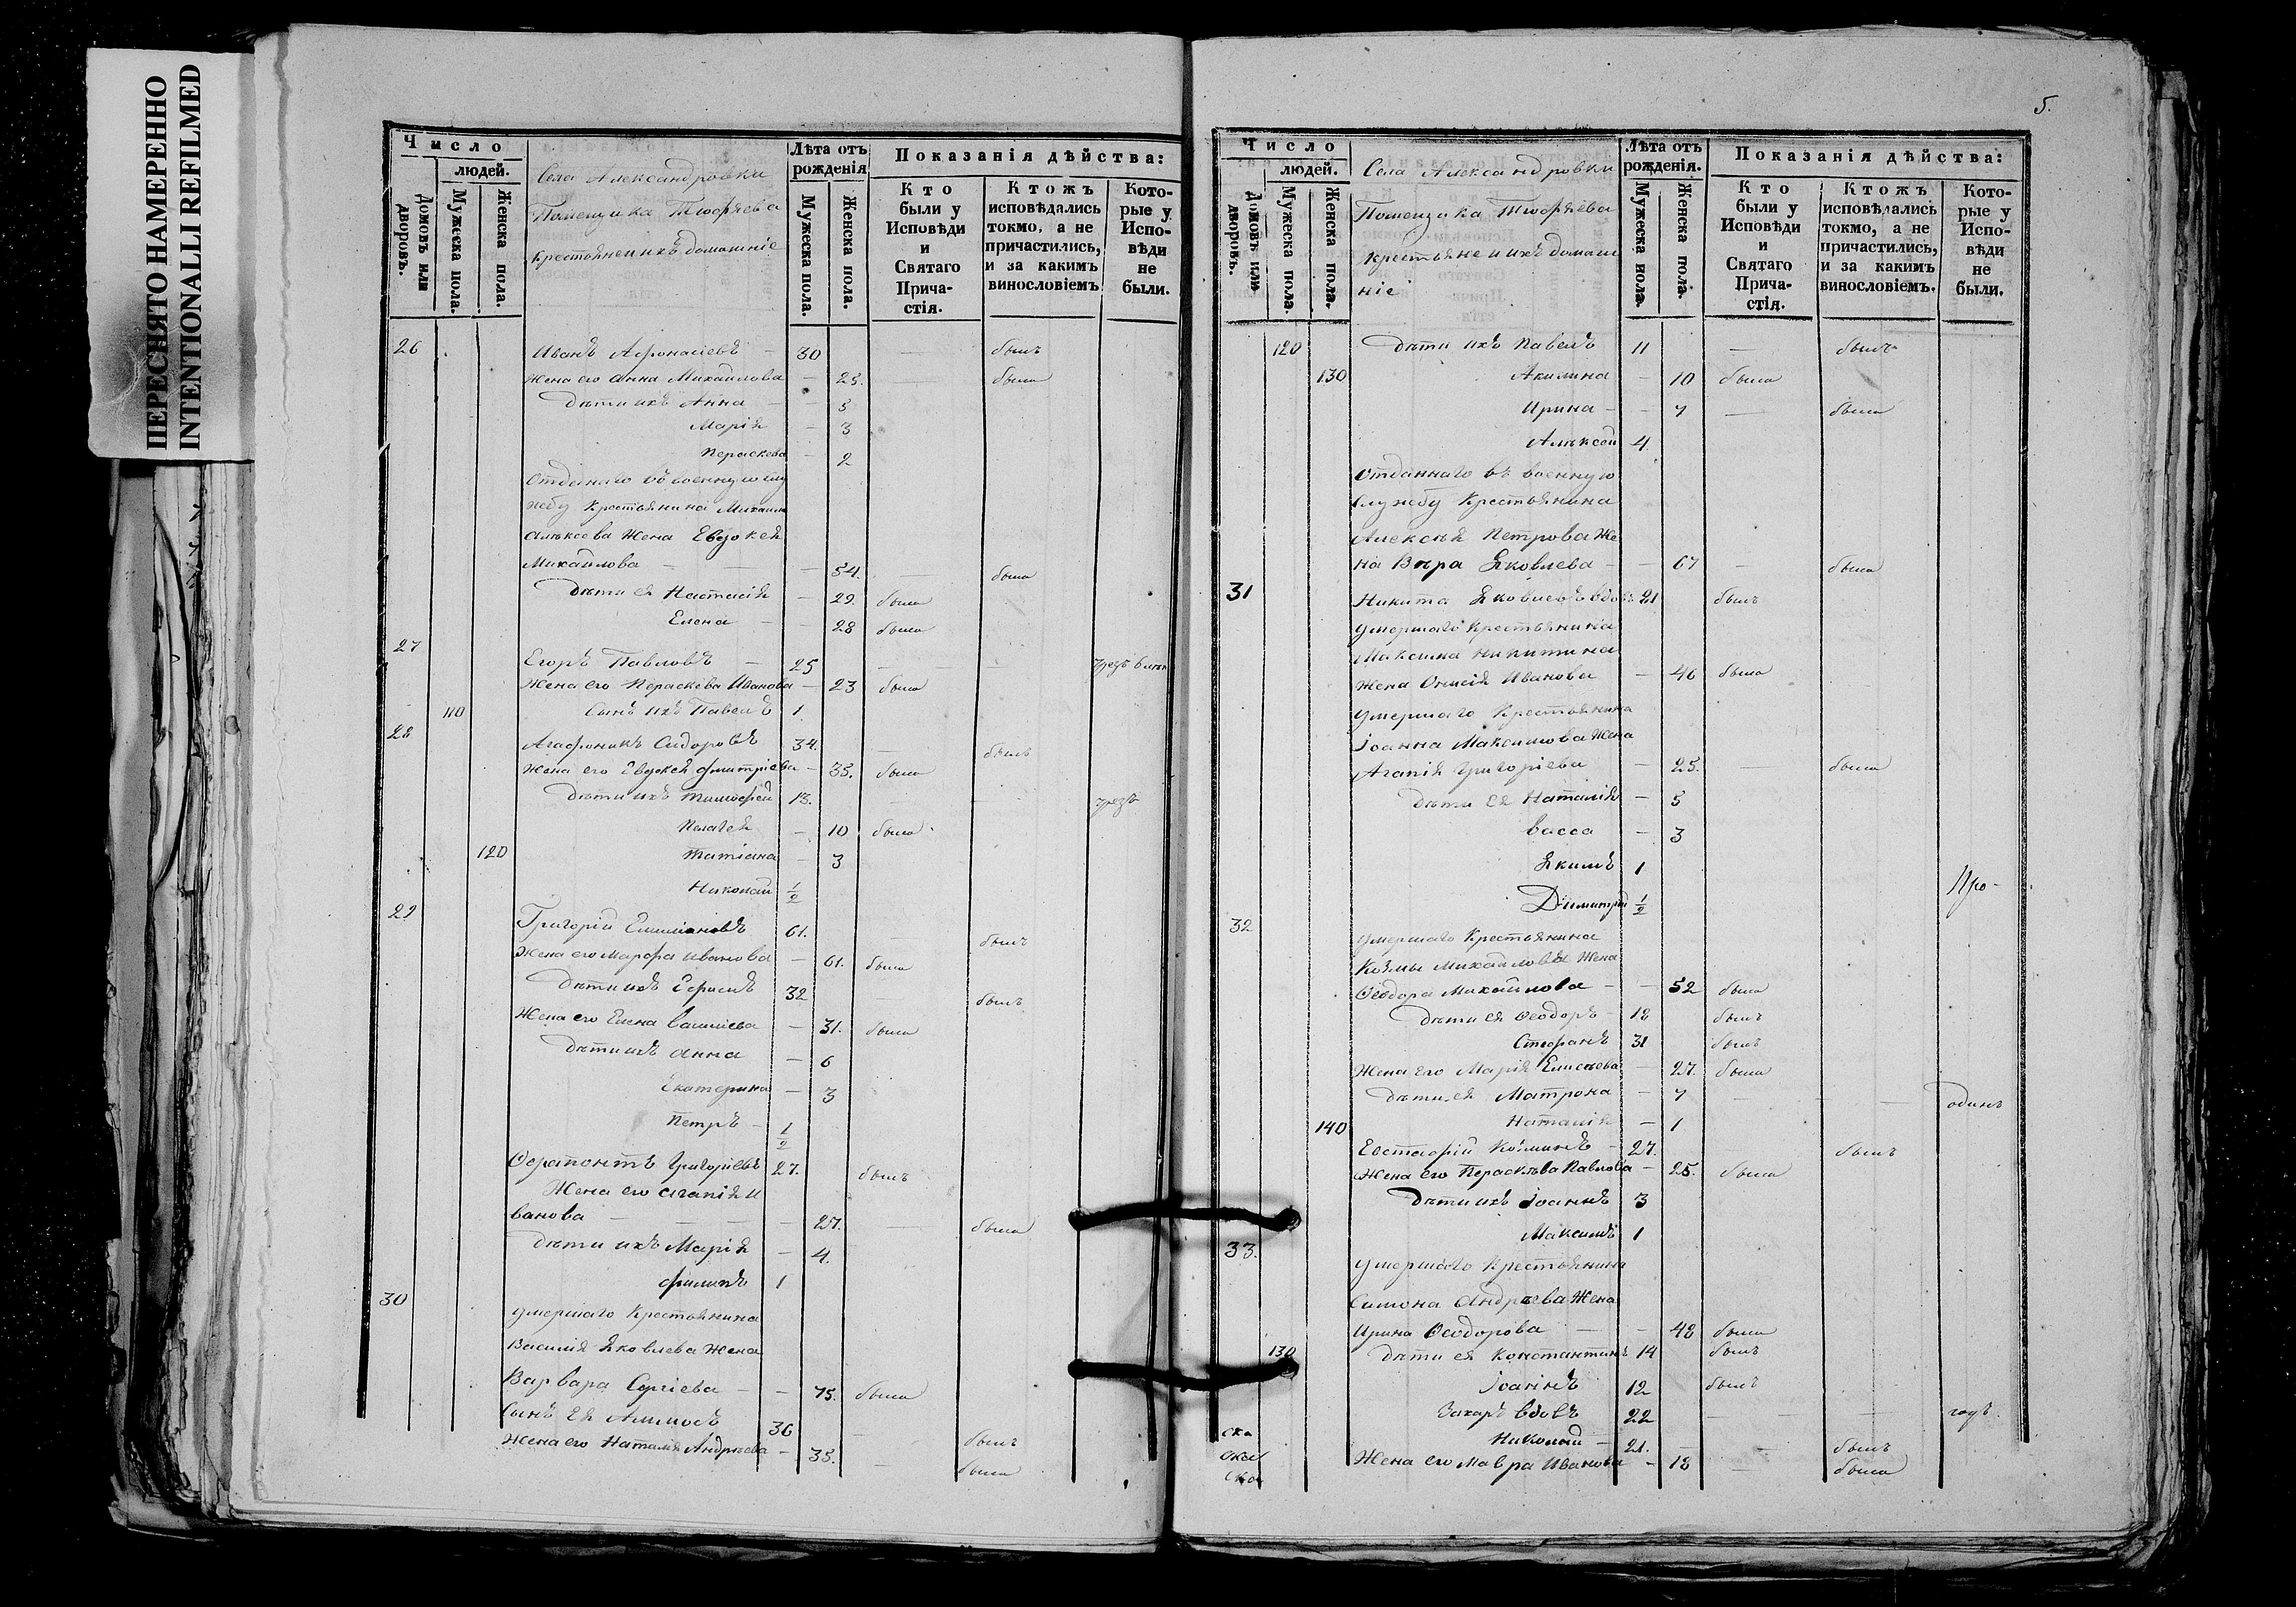 ПЕРЕСНЯТО НАМЕРЕННО
INTENTIONALLI REFILMED
Число
людей.
Домовъ или дворовъ.
Мужеска пола.
Женска пола.
Села Александровки
Помещика Тюфяева
крестьяне и ихъ домашніе
Лѣта отъ рожденія
Мужеска пола.
Женска пола.
Показанія дѣйства:
Кто были у Исповѣди и Святаго Причастія.
Ктожъ исповѣдались токмо, а не причастились, и за какимъ винословіемъ
Которые у Исповѣди не были.
26 Иванъ Афонасіевъ – 30 — былъ
Жена его Анна Михаилова – 25. — была
Дѣти ихъ Анна – 5
Марія – 3
Пераскева – 2
Отданаго въ военную слу
жбу крестьянина Михаила
Алѣксева жена Евдокея
Михаилова – 54. — была
Дѣти ея Настасія – 29. была
Елена – 28 была
27 Егоръ Павловъ – 25 — —
Жена его Пераскева Иванова – 23 была
110 Сынъ ихъ Павелъ 1
28 Агафоникъ Сидоровъ 34. — былъ
Жена его Евдокея Дмитріева – 35. была
Дѣти ихъ Тимофей 13. —
Пелагея – 10 была
120 Татіана – 3
Николай 1/2
29 Григорій Емиліановъ 61. — былъ
Жена его Марфа Иванова – 61. была
Дѣти ихъ Ефимъ 32 былъ
Жена его Елена Василіева – 31. была
Дѣти ихъ Анна – 6
Екатерина – 3
Петръ – 1/2
Ферапонтъ Григоріевъ 27. былъ
Жена его Агапія И
ванова – – – – 27. — была
Дѣти ихъ Марія – 4.
Филипъ 1
30 умершаго Крестьянина
Василія Яковлева Жена
Варвара Сергіева – – 75. была
Сынъ ея 36 — былъ
Жена его Наталія Андрѣева – 35. — была
5.
Число
людей.
Домовъ или дворовъ.
Мужеска пола.
Женска пола.
Села Александровки
Помещика Тюфяева
крестьяне и ихъ домаш
ніе
Лѣта отъ рожденія.
Мужеска пола.
Женска пола.
Показанія дѣйства:
Кто были у Исповѣди и Святаго Причастія.
Ктожъ исповѣдались токмо, а не причастились, и за какимъ винословіемъ.
Которые у Исповѣди не были.
120 Дѣти ихъ Павелъ 11 — былъ
130 Акилина – 10 была
Ирина – – 7 — была
Алѣксей 4.
Отданнаго въ военную
службу Крестьянина
Алексѣя Петрова Же
на Вѣра Яковлева – – 67 – была
31 Никита Яковлевъ вдовъ 21 былъ
умершаго крестьянина
Максима Никитина
Жена Иванова – 46 была
умершаго Крестьянина
Іоанна Максимова Жена
Агапія Григоріева – 25. — была
Дѣти ея Наталія – 5
Васса – 3
Якимъ 1
Димитрій 1/2
Про-
32 умершаго Крестьянина
Козмы Михаилова Жена
Феодора Михайлова – – 52 была
Дѣти ея Феодоръ – 18 былъ
Стефанъ 31 былъ
Жена его Марія Елисеева – 27. была
Дѣти ея Матрона – 7 — — одинъ
140 Наталія – 1
Евстафій Козминъ – 27. — былъ
Жена его Пераскѣва Павлова – 25. была
Дѣти ихъ Іоаннъ 3
Максимъ 1
33. умершаго Крестьянина
Симона Андрѣева Жена
Ирина Феодорова – – 48 была
130 Дѣти ея Константинъ 14 былъ
Іоаннъ 12 былъ
Захаръ вдовъ 22 — — годъ
Николай – 21. – былъ
Жена его Мавра Иванова – 18 — была